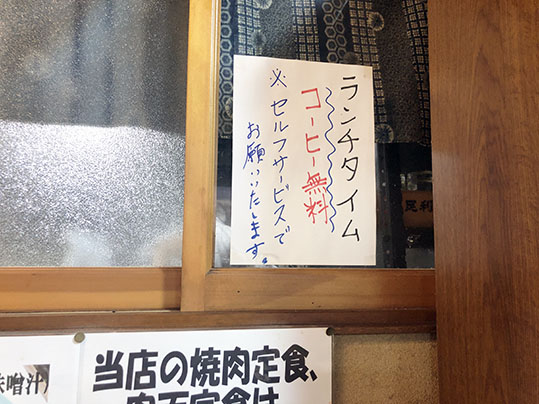 ランチタイム
コーヒー無料
※セルフサービスで
お願いいたします。
味噌汁
当店の焼肉定食、